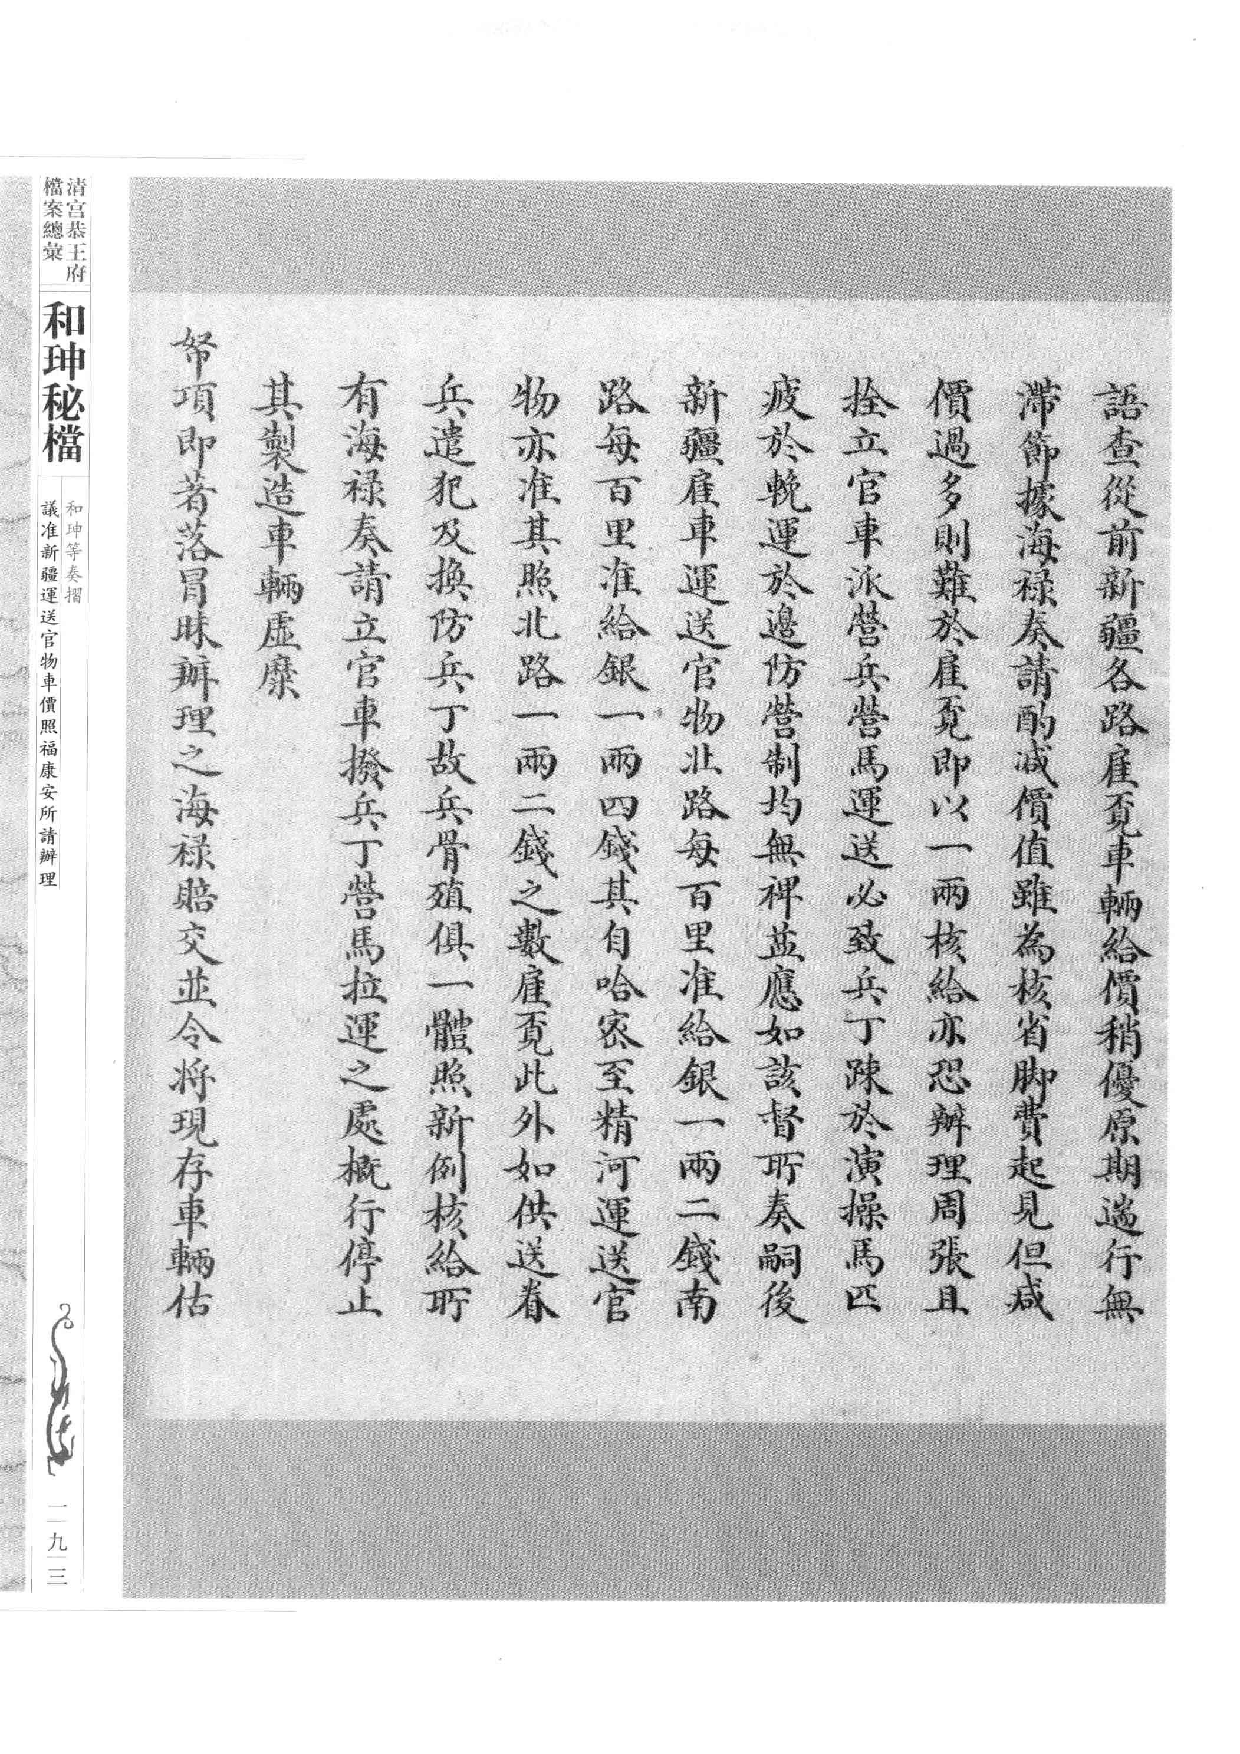 語查從前新疆各路雇覓車輛給價稍優原期遄行無
滯節據海禄奏請酌減價值雖為核省脚費起見但減
價過多則難於雇覓即以一兩核給亦恐辦理周張且
拴立官車派營兵營馬運送必致兵丁踈於演操馬匹
疲於輓運於邊防營制均無裨益應如該督所奏嗣後
新疆雇車運送官物北路每百里准給銀一兩二錢南
路每百里准給銀一兩四錢其自哈宻至精河運送官
物亦准其照北路一兩二錢之數雇覓此外如供送眷
兵遣犯及換防兵丁故兵骨殖俱一體照新例核給所
有海禄奏請立官車撥兵丁營馬拉運之處概行停止
其製造車輛虛糜
帑項即著落冒昧辦理之海禄賠交並令将現存車輛估
清宮恭王府
檔案總彙
和珅秘檔
和珅等奏摺
議准新疆運送官物車價照福康安所請辦理
二九三